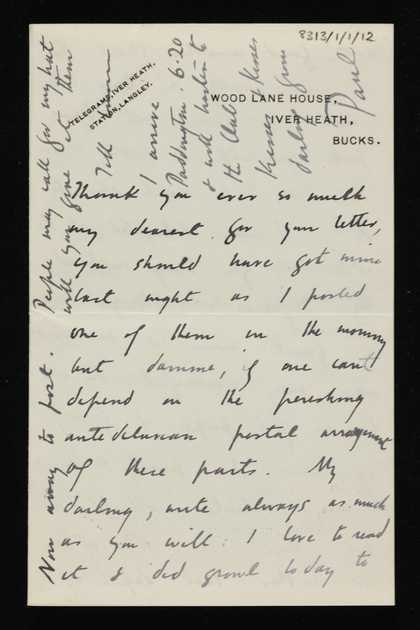 8313/1/1/12
TELEGRAMS, IVER HEATH.
STATION, LANGLEY.
WOOD LANE HOUSE,
IVER HEATH,
BUCKS.
Thank you ever so much
my dearest for your letter,
you should have got mine
last night as I posted
one of them in the morning
but damme, if one can't
depend on the perishing
antedeluvian postal arrangement
of these parts. My
darling, write always as much
as you will: I love to read
it & did growl today to
Now away to post. People may call for my hat
will you give it them
I arrive
Paddington. 6.20
& will hasten to
the Club. Kisses
Kisses from
darling
Paul